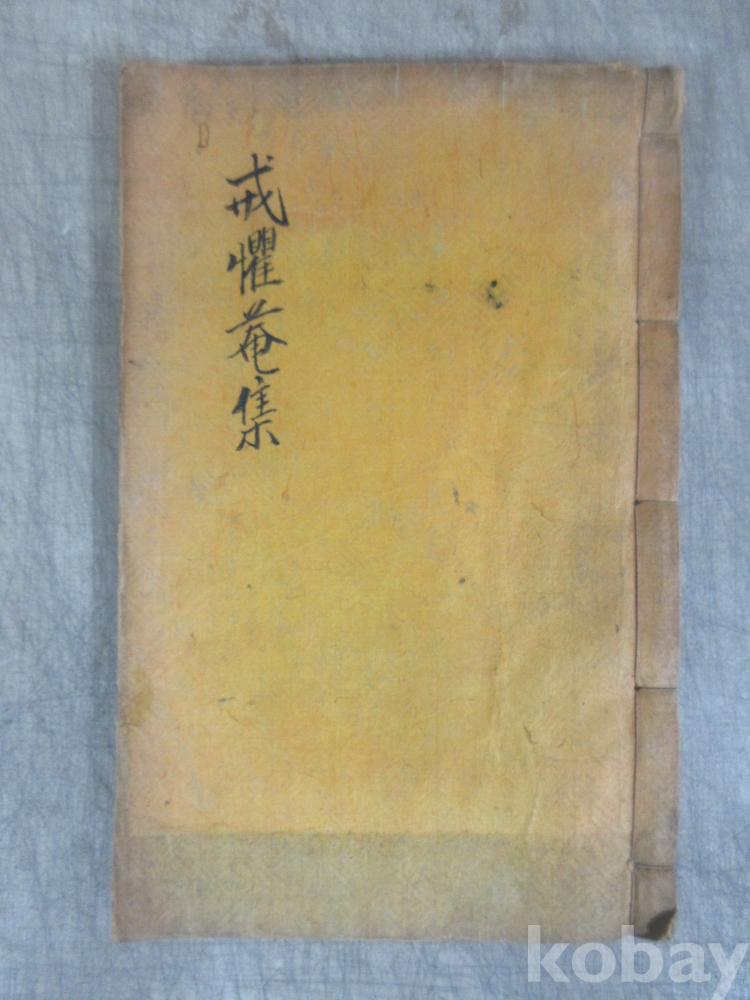 戒懼菴集
kobay